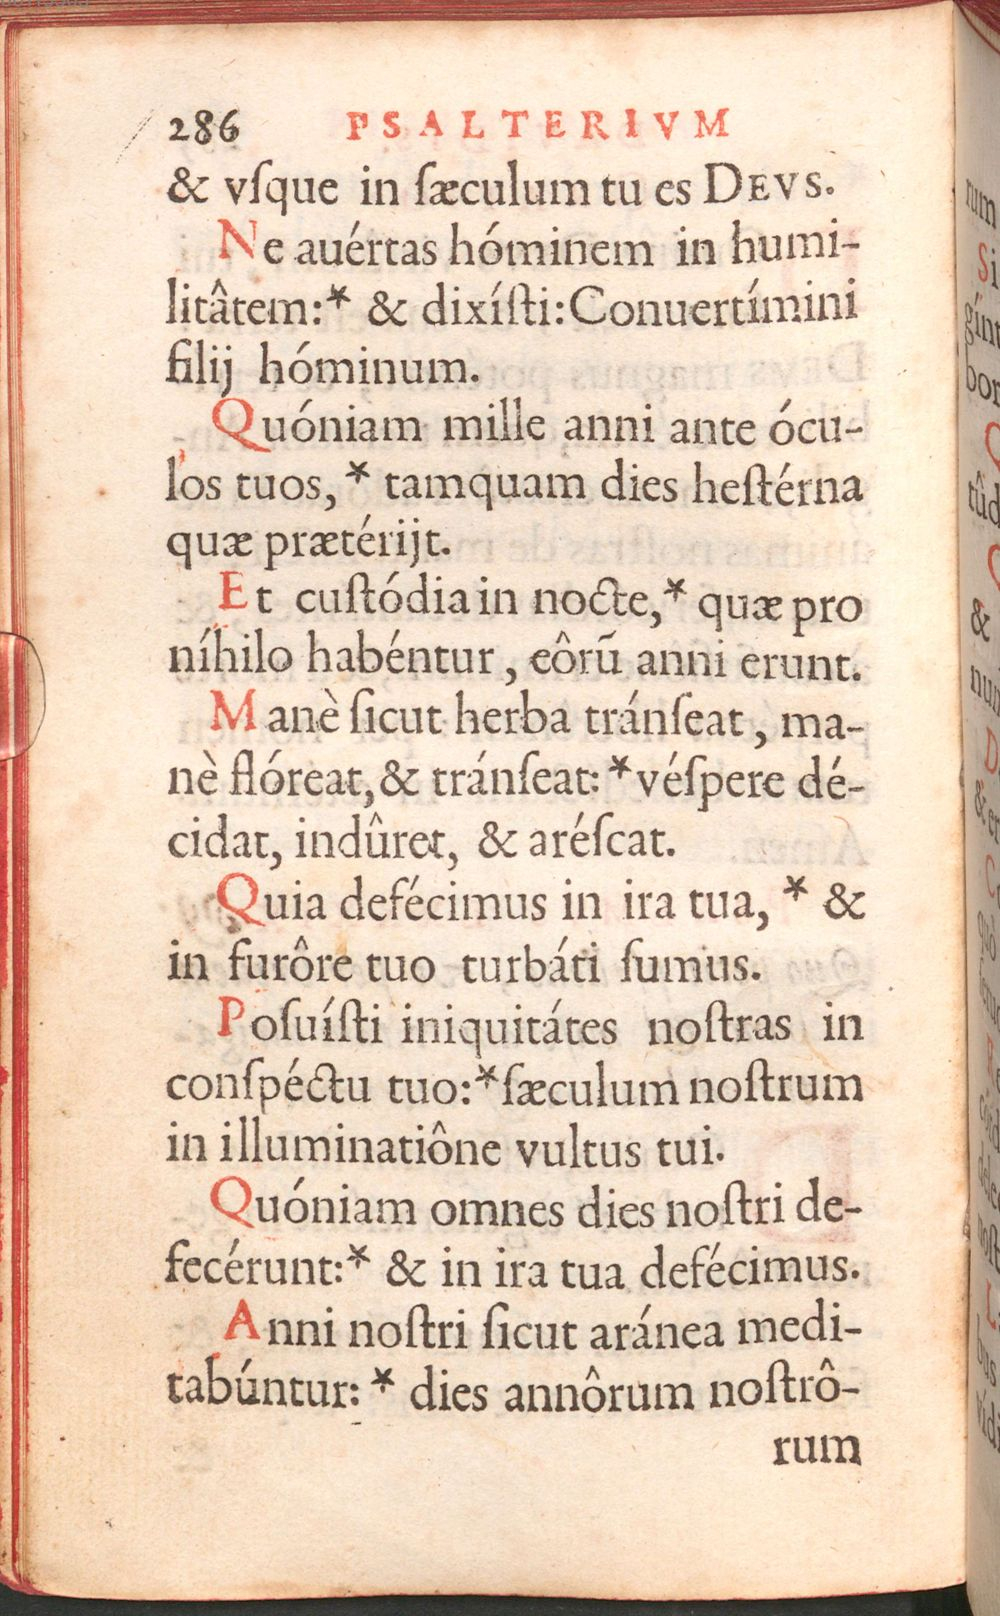 286 PSALTERIVM
& vſque in ſæculum tu es DEVS.
Ne auértas hóminem in humi-
litâtem:* & dixíſti: Conuertímini
filij hóminum.
Quóniam mille anni ante ócu-
los tuos, * tamquam dies heſtérna
quæ prætérijt.
Et cuſtódia in nocte,* quæ pro
níhilo habéntur, eôrũ anni erunt.
Manè ſicut herba tránſeat, ma-
nè flóreat, & tránſeat: * véſpere dé-
cidat, indûret, & aréſcat.
Quia defécimus in ira tua, * &
in furôre tuo turbáti ſumus.
Poſuíſti iniquitátes noſtras in
conſpéctu tuo:* ſæculum noſtrum
in illuminatiône vultus tui.
Quóniam omnes dies noſtri de-
fecérunt:* & in ira tua defécimus.
Anni noſtri ſicut aránea medi-
tabúntur: * dies annôrum noſtrô-
rum